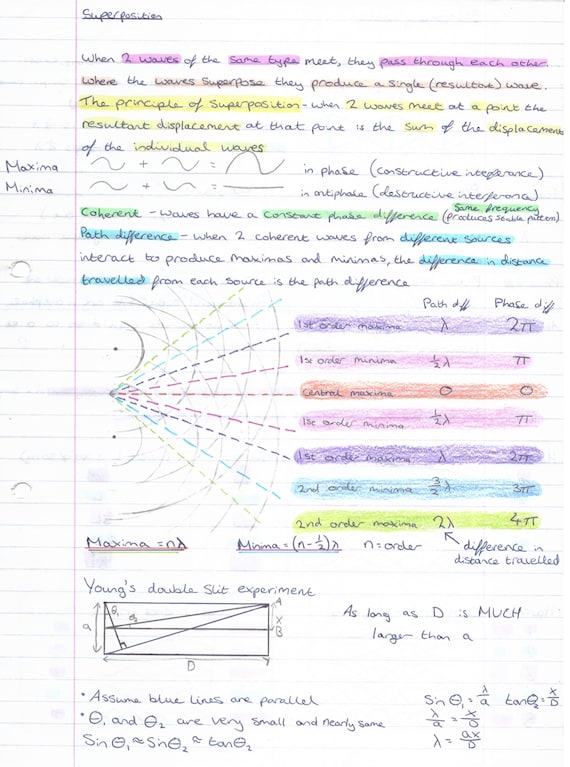 Superposition
When 2 waves of the same type meet, they pass through each other.
Where the waves superpose they produce a single (resultant) wave.
The principle of superposition - when 2 waves meet at a point the
resultant displacement at that point is the sum of the displacement
of the individual waves
Maxima + = in phase (constructive interference)
Minima + = in antiphase (destructive interference)
Coherent - waves have a constant phase difference (same frequency
produces stable pattern)
Path difference - when 2 coherent waves from different sources
interact to produce maximas and minimas, the difference in distance
travelled from each source is the path difference
Path diff Phase diff
1st order maxima λ 2π
1st order minima ½λ π
Central maxima 0 0
1st order minima ½λ π
1st order maxima λ 2π
2nd order minima 3/2 λ 3π
2nd order maxima 2λ 4π
Maxima = nλ Minima = (n-½)λ n = order
difference in
distance travelled
Young's double slit experiment
a θ₁ θ₂ A x B D
As long as D is MUCH
larger than a
• Assume blue lines are parallel
• θ, and θ₂ are very small and nearly same
Sin θ₁ ≈ Sin θ₂ ≈ tan θ₂
Sin θ₁ = λ/a tan θ₂ = x/D
λ/a = x/D
λ = ax/D